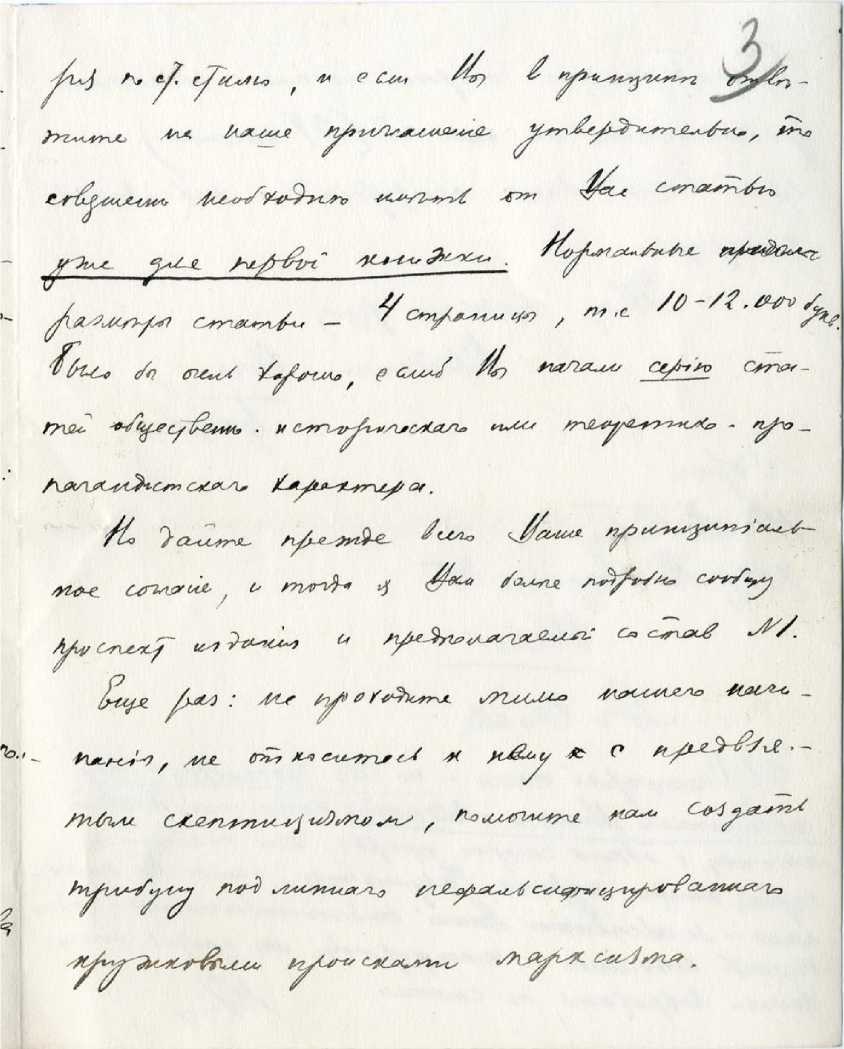 3
раз по ст. стилю, и если Вы в принципѣ отвѣ-
тите на наше приглашеніе утвердительно, то
совершенно необходимо имѣть от Вас статью
уже для первой книжки. Нормальные
размѣры статьи – 4 страницы, т.е 10–12.000 букв.
Было бы очень хорошо, еслиб Вы начали серію ста-
тей общественно-историческаго или теоретико-про-
пагандистскаго характера.
Но дайте прежде всего Ваше принципіаль-
ное согласіе, и тогда я Вам болѣе подробно сообщу
проспект изданія и предполагаемый состав №1.
Еще раз: не проходите мимо нашего начи-
нанія, не относитесь к нему с предвзя-
тым скептицизмом, помогите нам создать
трибуну подлиннаго нефальсифицированнаго
кружковыми происками марксизма.